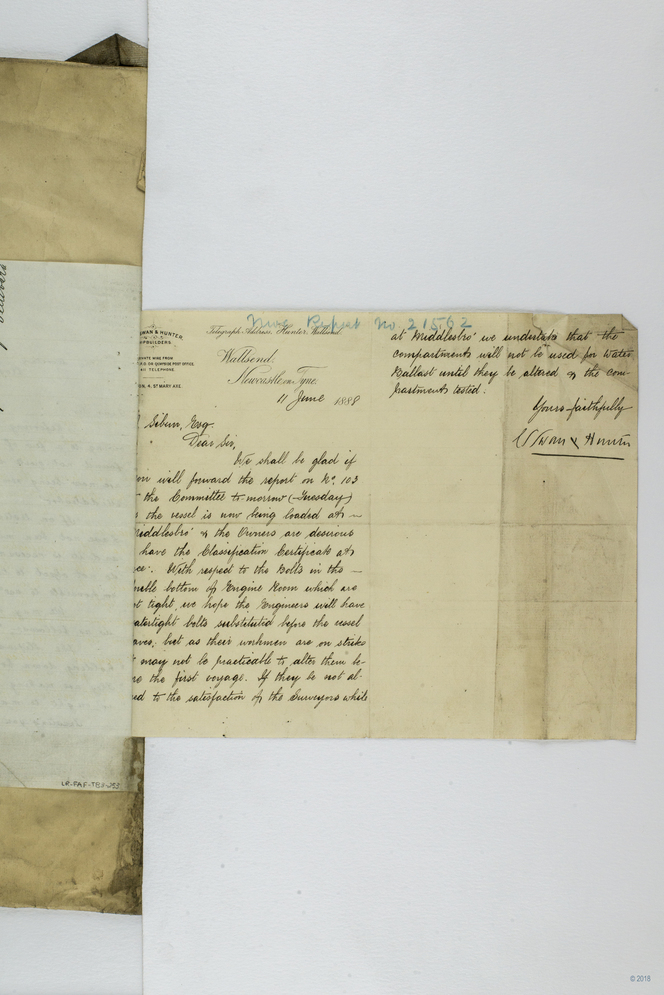 Nwc Report No 21562
SWAN & HUNTER,
SHIPBUILDERS
Telegraph Address, Hunter, Wallsend.
POST OFFICE
TELEPHONE.
ST MARY AXE.
Wallsend,
Newcastle on Tyne.
11 June 1888
Esq.
Dear Sir,
We shall be glad if
will forward the report on No. 103
the Committee to morrow (Tuesday)
the vessel is now being loaded at
Middlesbro' & the Owners are desirous
have the Classification Certificate at
ce. With respect to the Bolts in the
ble bottom of Engine Room which are
t tight, we hope the Engineers will have
atertight bolts substituted before the vessel
aves, but as their workmen are on strike
t may not be practicable to alter them be-
re the first voyage. If they be not al-
ed to the satisfaction of the Surveyors while
at Middlesbro' we undertake that the
compartments will not be used for Water
Ballast until they be altered & the com-
partments tested.
Yours faithfully
Swan & Hunter
LR-FAF-TB8-255
© 2018